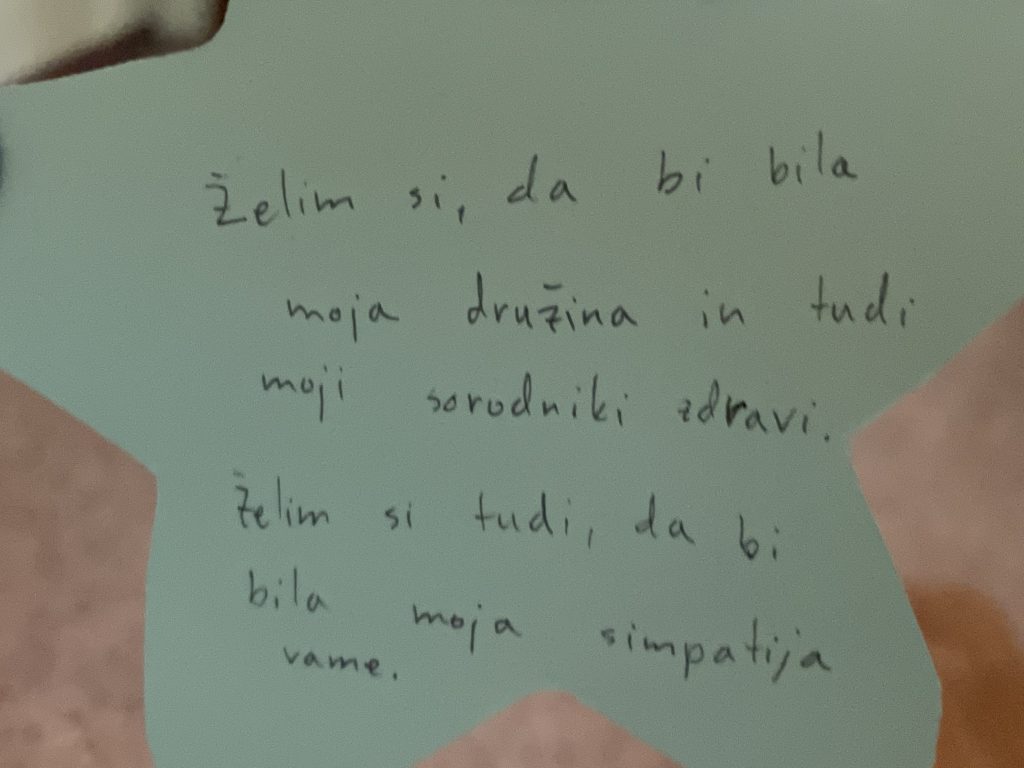 Želim si, da bi bila
moja družina in tudi
moji sorodniki zdravi.
Želim si tudi, da bi
bila moja simpatija
vame.